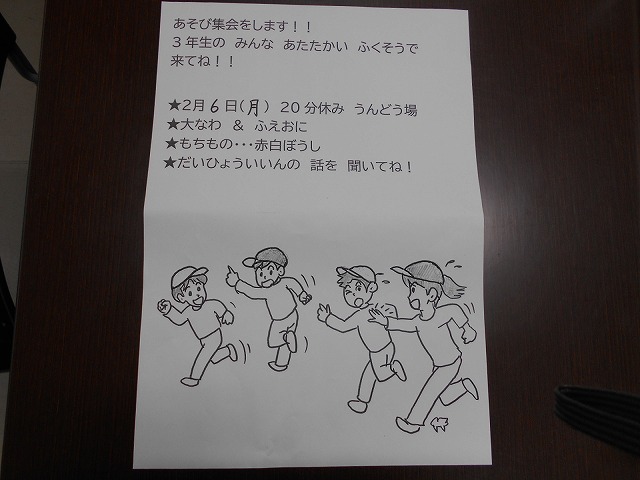 あそび集会をします！！
３年生の みんな あたたかい ふくそうで
来てね！！
★２月６日（月） ２０分休み うんどう場
★大なわ ＆ ふえおに
★もちもの・・・赤白ぼうし
★だいひょういいんの 話を 聞いてね！